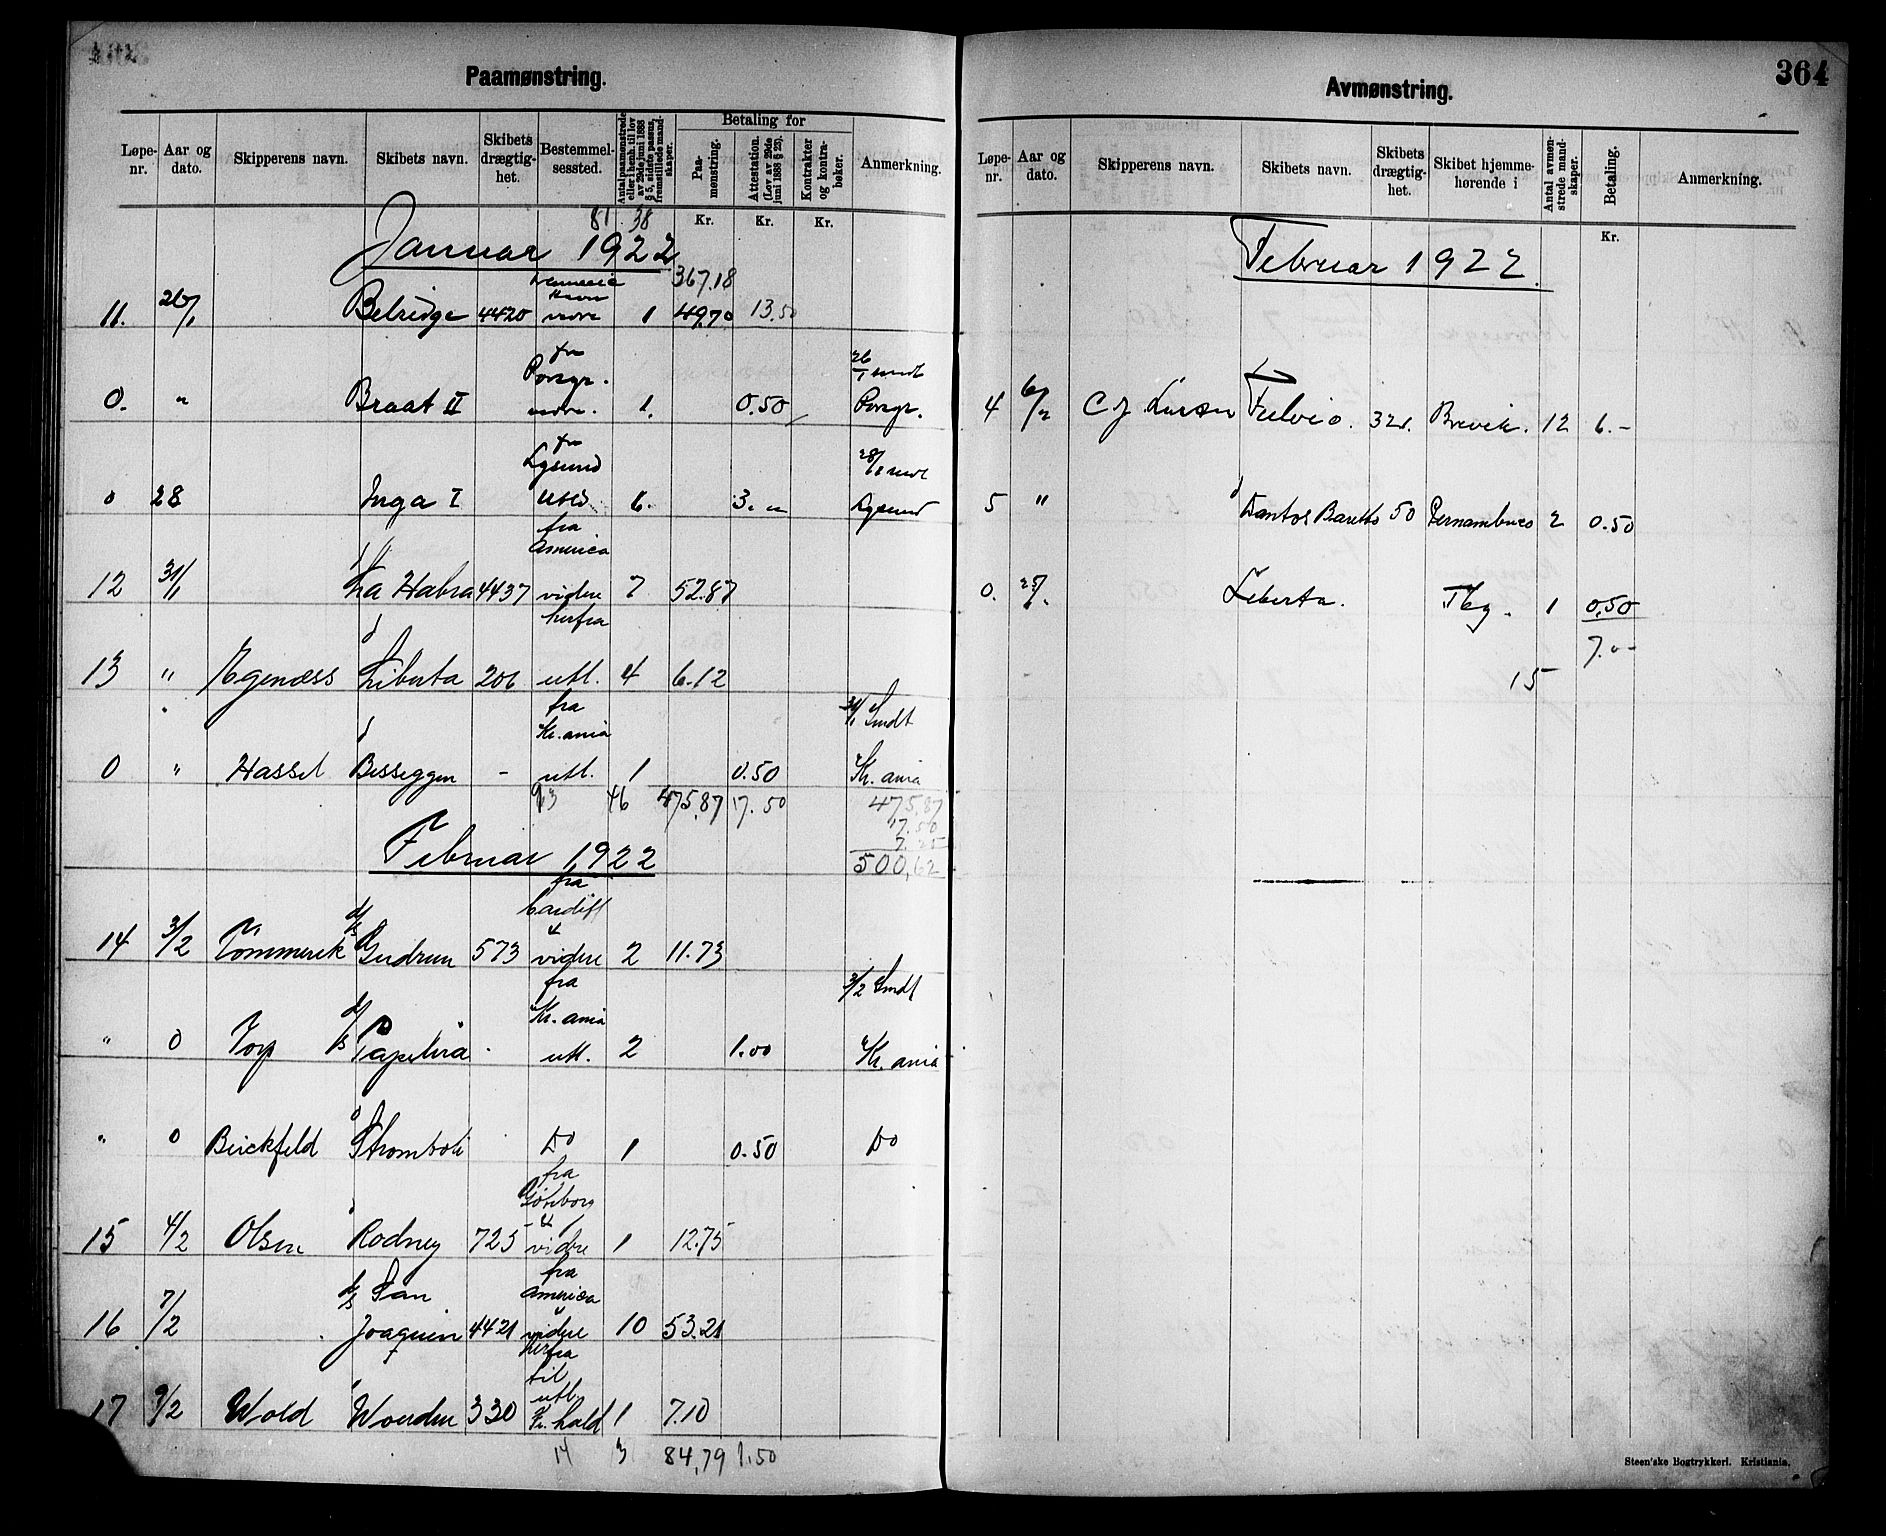 Paamønstring.
Løpe-nr. Aar og dato. Skipperens navn. Skibets navn. Skibets drægtig-het. Bestemmel-sessted. Betaling for Paa-mønstring. Attestation. (Lov av 29de juni 1888 § 23). Kontrakter og kontra-bøker. Anmerkning.
Kr. Kr. Kr.
81 38
Januar 1922
367.18
11. 26/1 Belridge 4420 videre 1 49.70 13.50
fra 26/1 sendt
Porsgr.
0. " Braat II videre. 1. 0.50 Porsgr.
fra 28/1 sendt
Lysund
0 28 Inga I Utld. 6. 3. "
fra
America
12 31/1 La Habra 4437 videre 7 52.87
herfra
13 " Agenæss Liberta 206 utl. 4 6.12
fra 31/1 Sendt
Kr.ania
0 " Hassel Besseggen - utl. 1 0.50 Kr. ania
93 46 475,87 17.50 475,87
17.50
7.25
Februar 1922 500,62
fra
Cardiff
14 3/2 d/s Gudrun 573 videre 2 11.73
fra 3/2 Sendt
Kr. ania
" 0 Torp d/s Papelera - utl. 2 1.00 Kr. ania
" 0 Birckfeld Stromboli Do 1 0.50 Do
fra
Göteborg
15 4/2 Olsen Rodney 725 videre 1 12.75
fra
d/s San America
16 7/2 Joaquin 4421 videre 10 53.21
herfra
til
utl.
17 9/2 Wold 330 Fr. hald 1 7.10
14 3 84,79 1.50
Avmønstring.
364
Løpe-nr. Aar og dato. Skipperens navn. Skibets navn. Skibets drægtig-het. Skibet hjemme-hørende i Antal avmøn-strede mand-skaper. Betaling. Anmerkning.
Kr.
Februar 1922.
4 6/2 C J Larsen Fulvio. 321. Brevik. 12 6.-
5 " Santos Baretto 50 Pernambuco 2 0.50
0. Liberta. Tbg. 1 0,50
7.--
15
Steen'ske Bogtrykkeri. Kristiania.